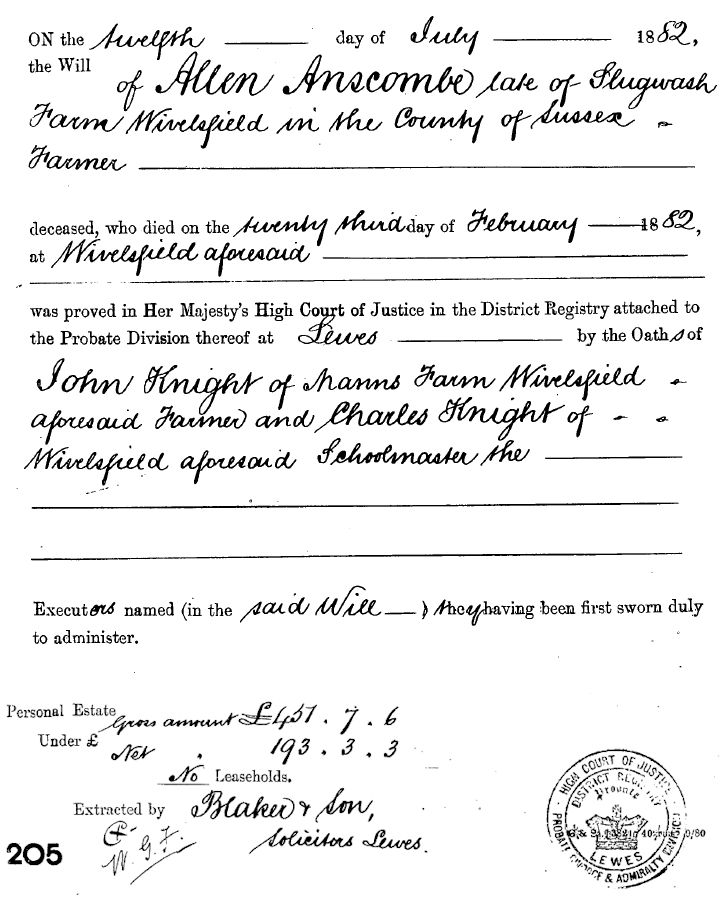 ON the twelfth day of July 1882,
the Will
of Allen Anscombe late of Slugwash
Farm Wivelsfield in the County of Sussex
Farmer
deceased, who died on the twenty third day of February 1882,
at Wivelsfield aforesaid
was proved in Her Majesty's High Court of Justice in the District Registry attached to
the Probate Division thereof at Lewes by the Oaths of
John Knight of Manns Farm Wivelsfield
aforesaid Farmer and Charles Knight of
Wivelsfield aforesaid Schoolmaster the
Executors named (in the said Will ) they having been first sworn duly
to administer.
Personal Estate Gross amount £457 . 7 . 6
Under £ Net 193 . 3 . 3
No Leaseholds.
Extracted by Blaker & Son,
Solicitors Lewes.
W. G. F.
205
HIGH COURT OF JUSTICE
DISTRICT REGISTRY
Probate
LEWES
PROBATE DIVORCE & ADMIRALTY DIVISION